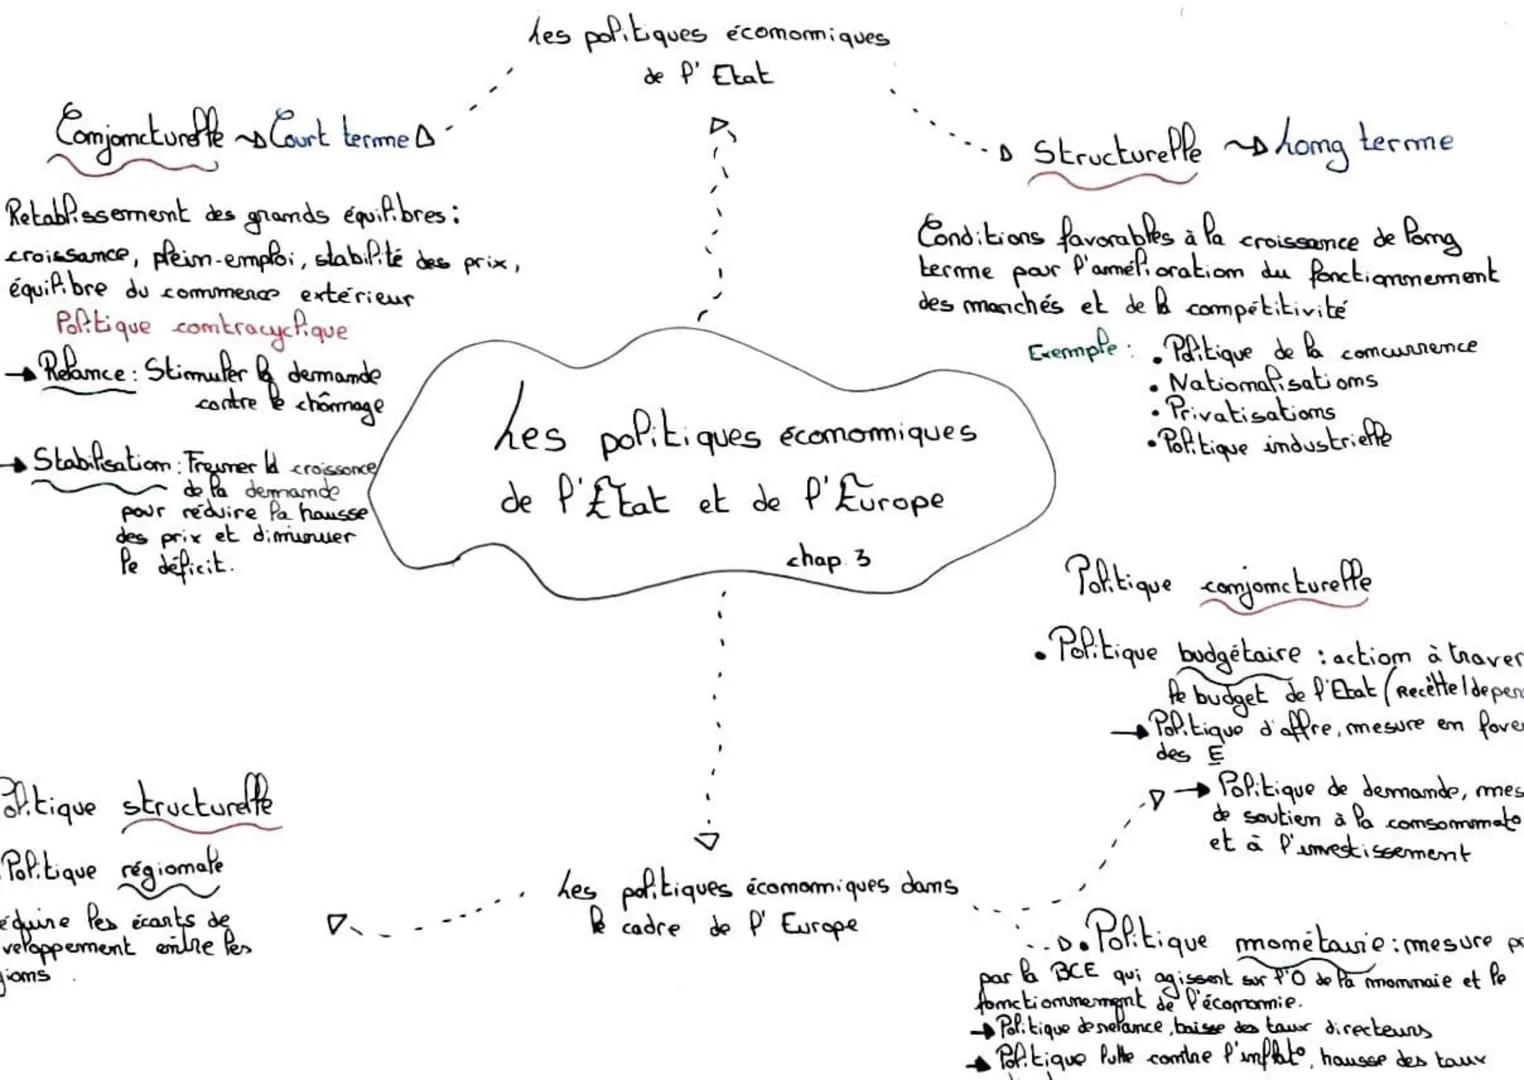 Les politiques économiques
de l'Etat
Conjoncturelle → Court terme
Retablissement des grands équilibres :
croissance, plein-emploi, stabilité des prix,
équilibre du commerce extérieur
Politique contracyclique
→ Relance : Stimuler la demande
contre le chômage
→ Stabilisation : Freiner la croissance
de la demande
pour réduire la hausse
des prix et diminuer
le déficit.
Structurelle → Long terme
Conditions favorables à la croissance de long
terme par l'amélioration du fonctionnement
des marchés et de la compétitivité
Exemple : • Politique de la concurrence
• Nationalisations
• Privatisations
• Politique industrielle
Les politiques économiques
de l'État et de l'Europe
chap. 3
Politique conjoncturelle
• Politique budgétaire : action à traver
le budget de l'Etat (Recette/depen
→ Politique d'offre, mesure en faveu
des E
→ Politique de demande, mes
de soutien à la consommat°
et à l'investissement
Politique structurelle
Politique régionale
éduire les écarts de
veloppement entre les
gions
Les politiques économiques dans
le cadre de l'Europe
• Politique monétaire : mesure p
par la BCE qui agissent sur l'O de la monnaie et le
fonctionnement de l'économie.
→ Politique de relance, baisse des taux directeurs
→ Politique lutte contre l'inflat°, hausse des taux